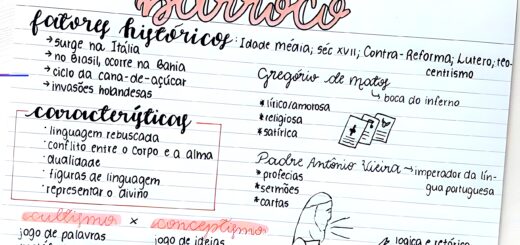 Barroco
fatores históricos: Idade média; séc XVII; Contra-Reforma; Lutero; teo-
centrismo
→ surge na Itália
→ no Brasil, ocorre na Bahia
→ ciclo da cana-de-açúcar
→ invasões holandesas
características
· linguagem rebuscada
· conflito entre o corpo e a alma
· dualidade
· figuras de linguagem
· representar o divino
Gregório de matos
↳ boca do inferno
* lírico/amorosa
* religiosa
* satírica
Padre Antônio Vieira → imperador da lín-
gua portuguesa
* profecias
* sermões
* cartas
cultismo x conceptismo
jogo de palavras
jogo de ideias
lógica e retórica